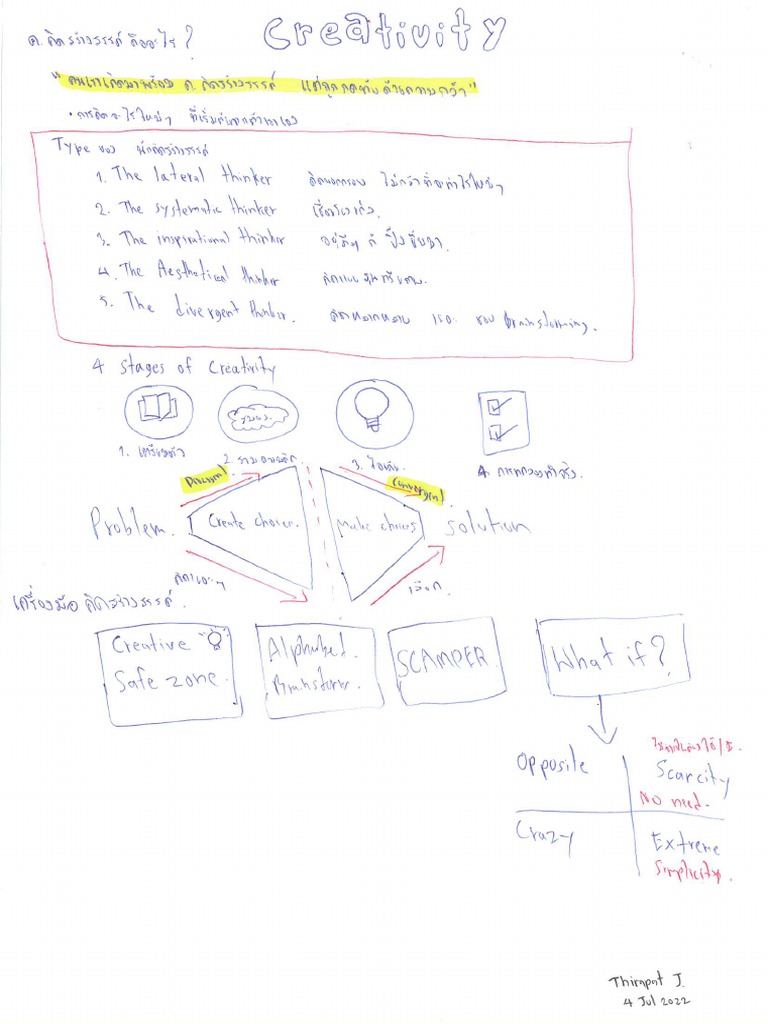 ค. คิดสร้างสรรค์ คืออะไร?
Creativity
"คนเราเกิดมาพร้อม ค. คิดสร้างสรรค์ แต่ถูกกดทับด้วยความกลัว"
• การคิดอะไรใหม่ๆ ที่เริ่มต้นจากตัวเราเอง
Type ของ นักคิดสร้างสรรค์
1. The lateral thinker คิดนอกกรอบ ไม่กลัวที่จะทำอะไรใหม่ๆ
2. The systematic thinker เชื่อมโยงเก่ง.
3. The inspirational thinker อยู่ดีๆ ก็ ปิ๊งขึ้นมา.
4. The Aesthetical thinker คิดแบบสุนทรียภาพ.
5. The divergent thinker. คิดหลากหลาย เยอะ ชอบ brainstorming.
4 stages of Creativity
1. เตรียมตัว
2.
3.
4. การทดลองทำจริง.
Divergent
Convergent
Problem.
Create choices.
Make choices
Solution
คิดเยอะๆ
เลือก.
เครื่องมือ คิดสร้างสรรค์.
Creative
Safe zone.
Alphabet.
Brainstorm.
SCAMPER.
What if?
Opposite
Scarcity
No need.
Crazy
Extreme
Simplicity.
Thirapat J.
4 Jul 2022